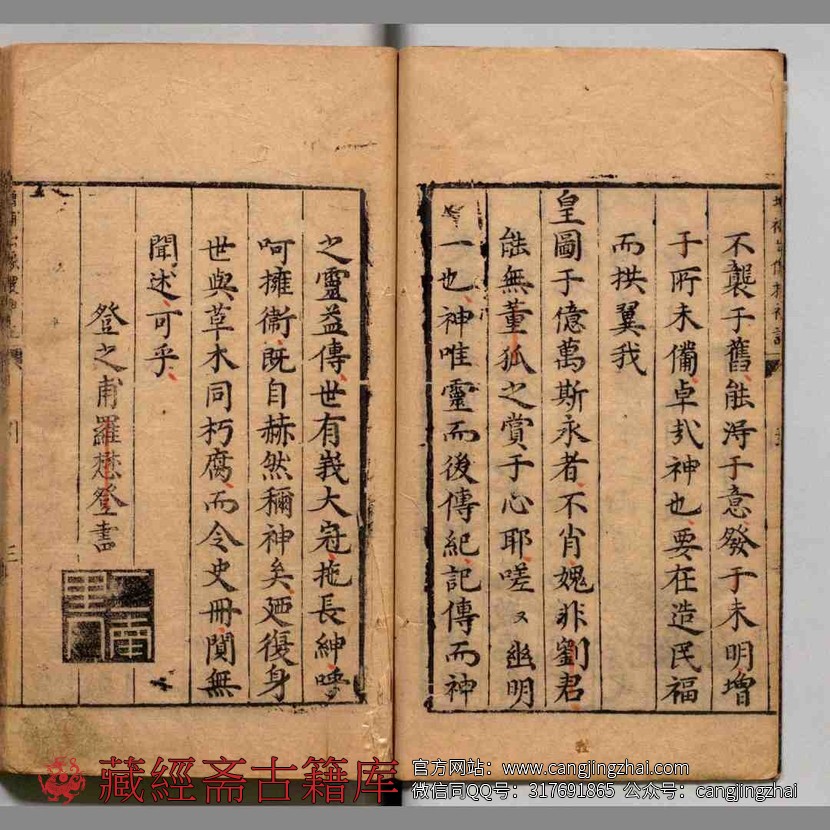 不襲于舊能淂于意發于未明增
于所未備卓㢤神也要在造民福
而拱翼我
皇圖于億萬斯永者不肖媿非劉君
能無董狐之賞于心耶嗟々幽明
一也神唯靈而後傳紀記傳而神
之靈益傳世有峩大冠拖長紳呼
呵擁衞既自赫然稱神矣廼復身
世與草木同朽腐而令史冊閴無
聞述可乎
登之甫羅懋登書
三
藏經斋古籍库
官方网站：www.cangjingzhai.com
微信同QQ号：317691865 公众号：cangjingzhai